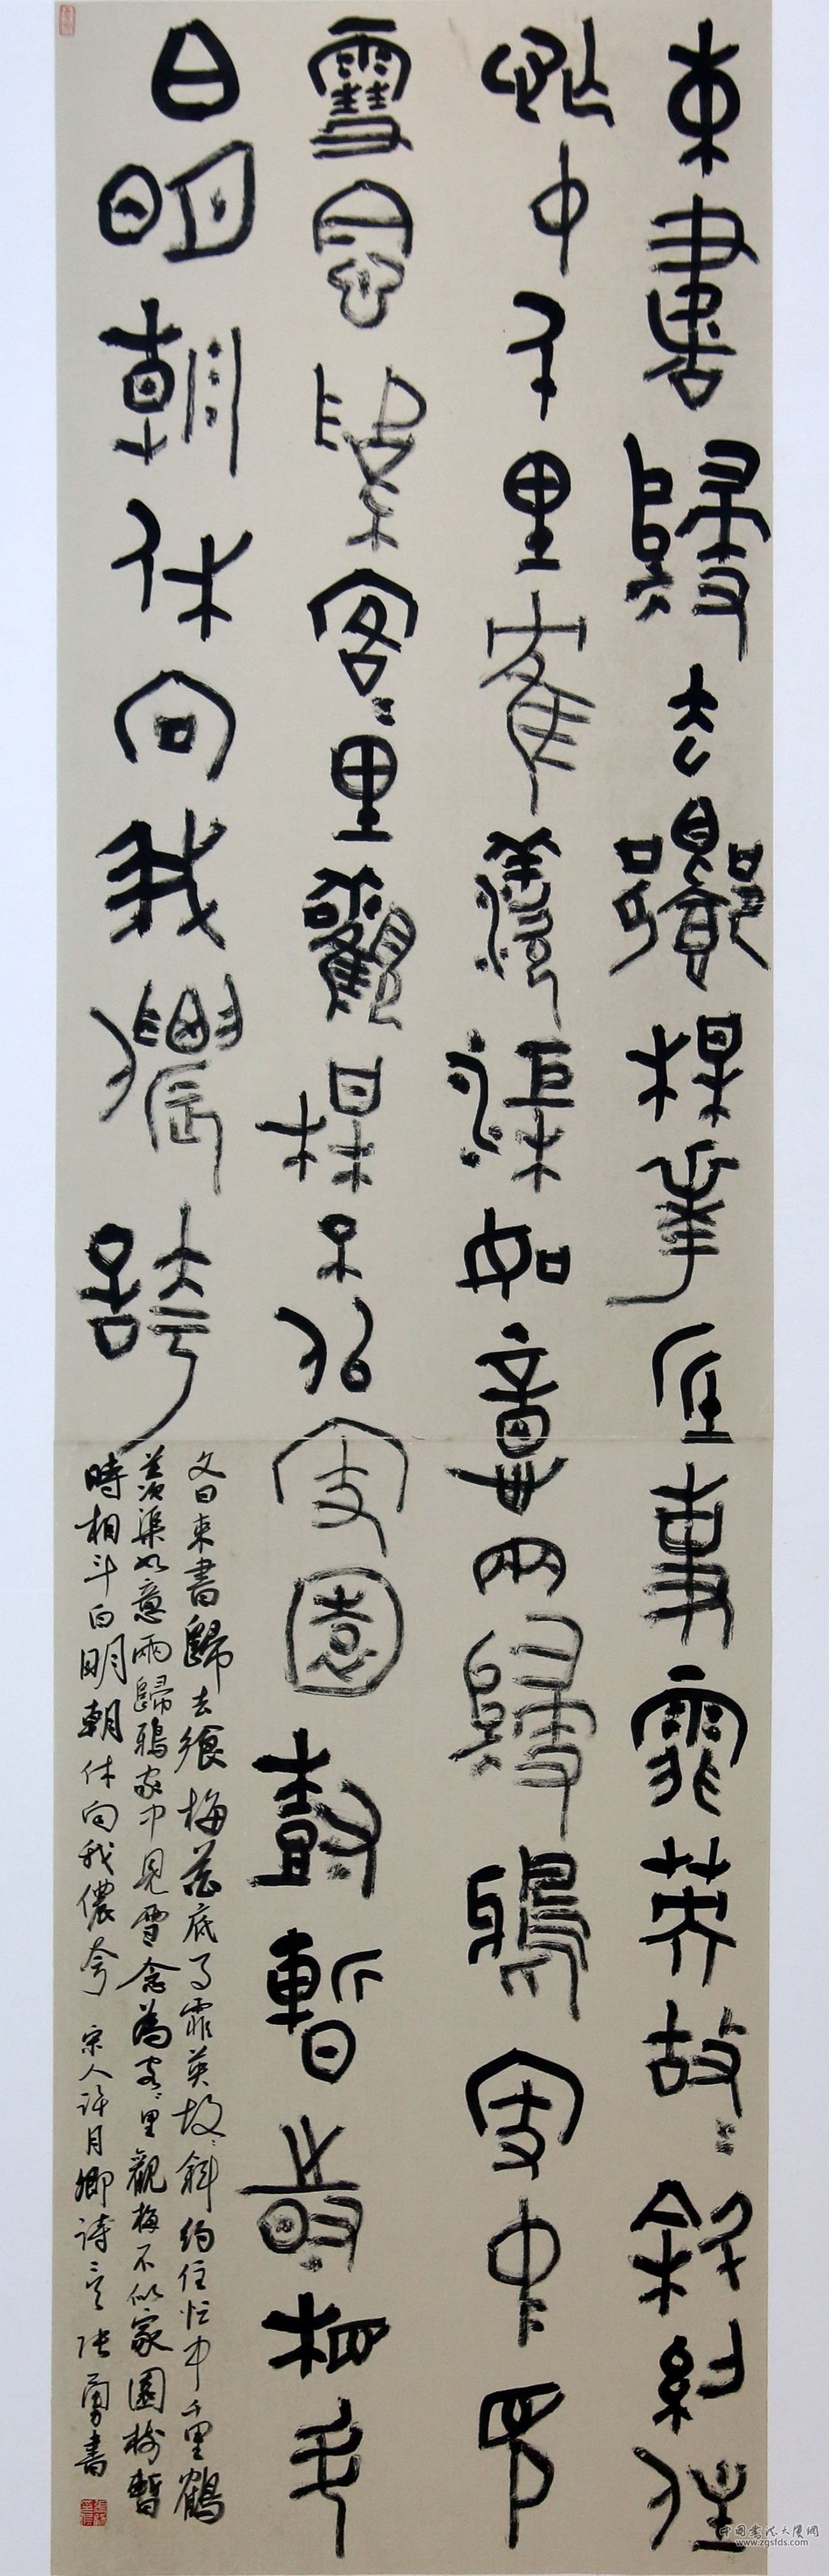 束書歸去饗梅華底事霏英故〻斜約住
忙中千里鶴羨渠如意兩歸鴉家中見
雪念為客〻里觀梅不似家園樹暫時相斗
白明朝休向我儂誇
文曰束書歸去饗梅花底事霏英故〻斜約住忙中千里鶴
羨渠如意兩歸鴉家中見雪念為客〻里觀梅不似家園樹暫
時相斗白明朝休向我儂夸 宋人許月卿詩一首 張勇書
中国書法大廈網
www.zgsfds.com